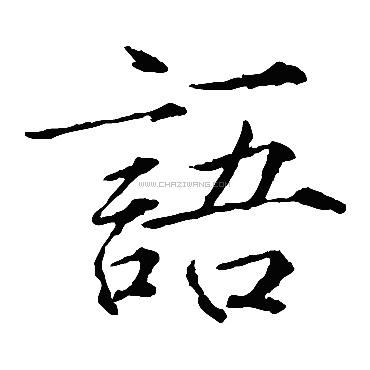 語
WWW.CHAZIWANG.COM